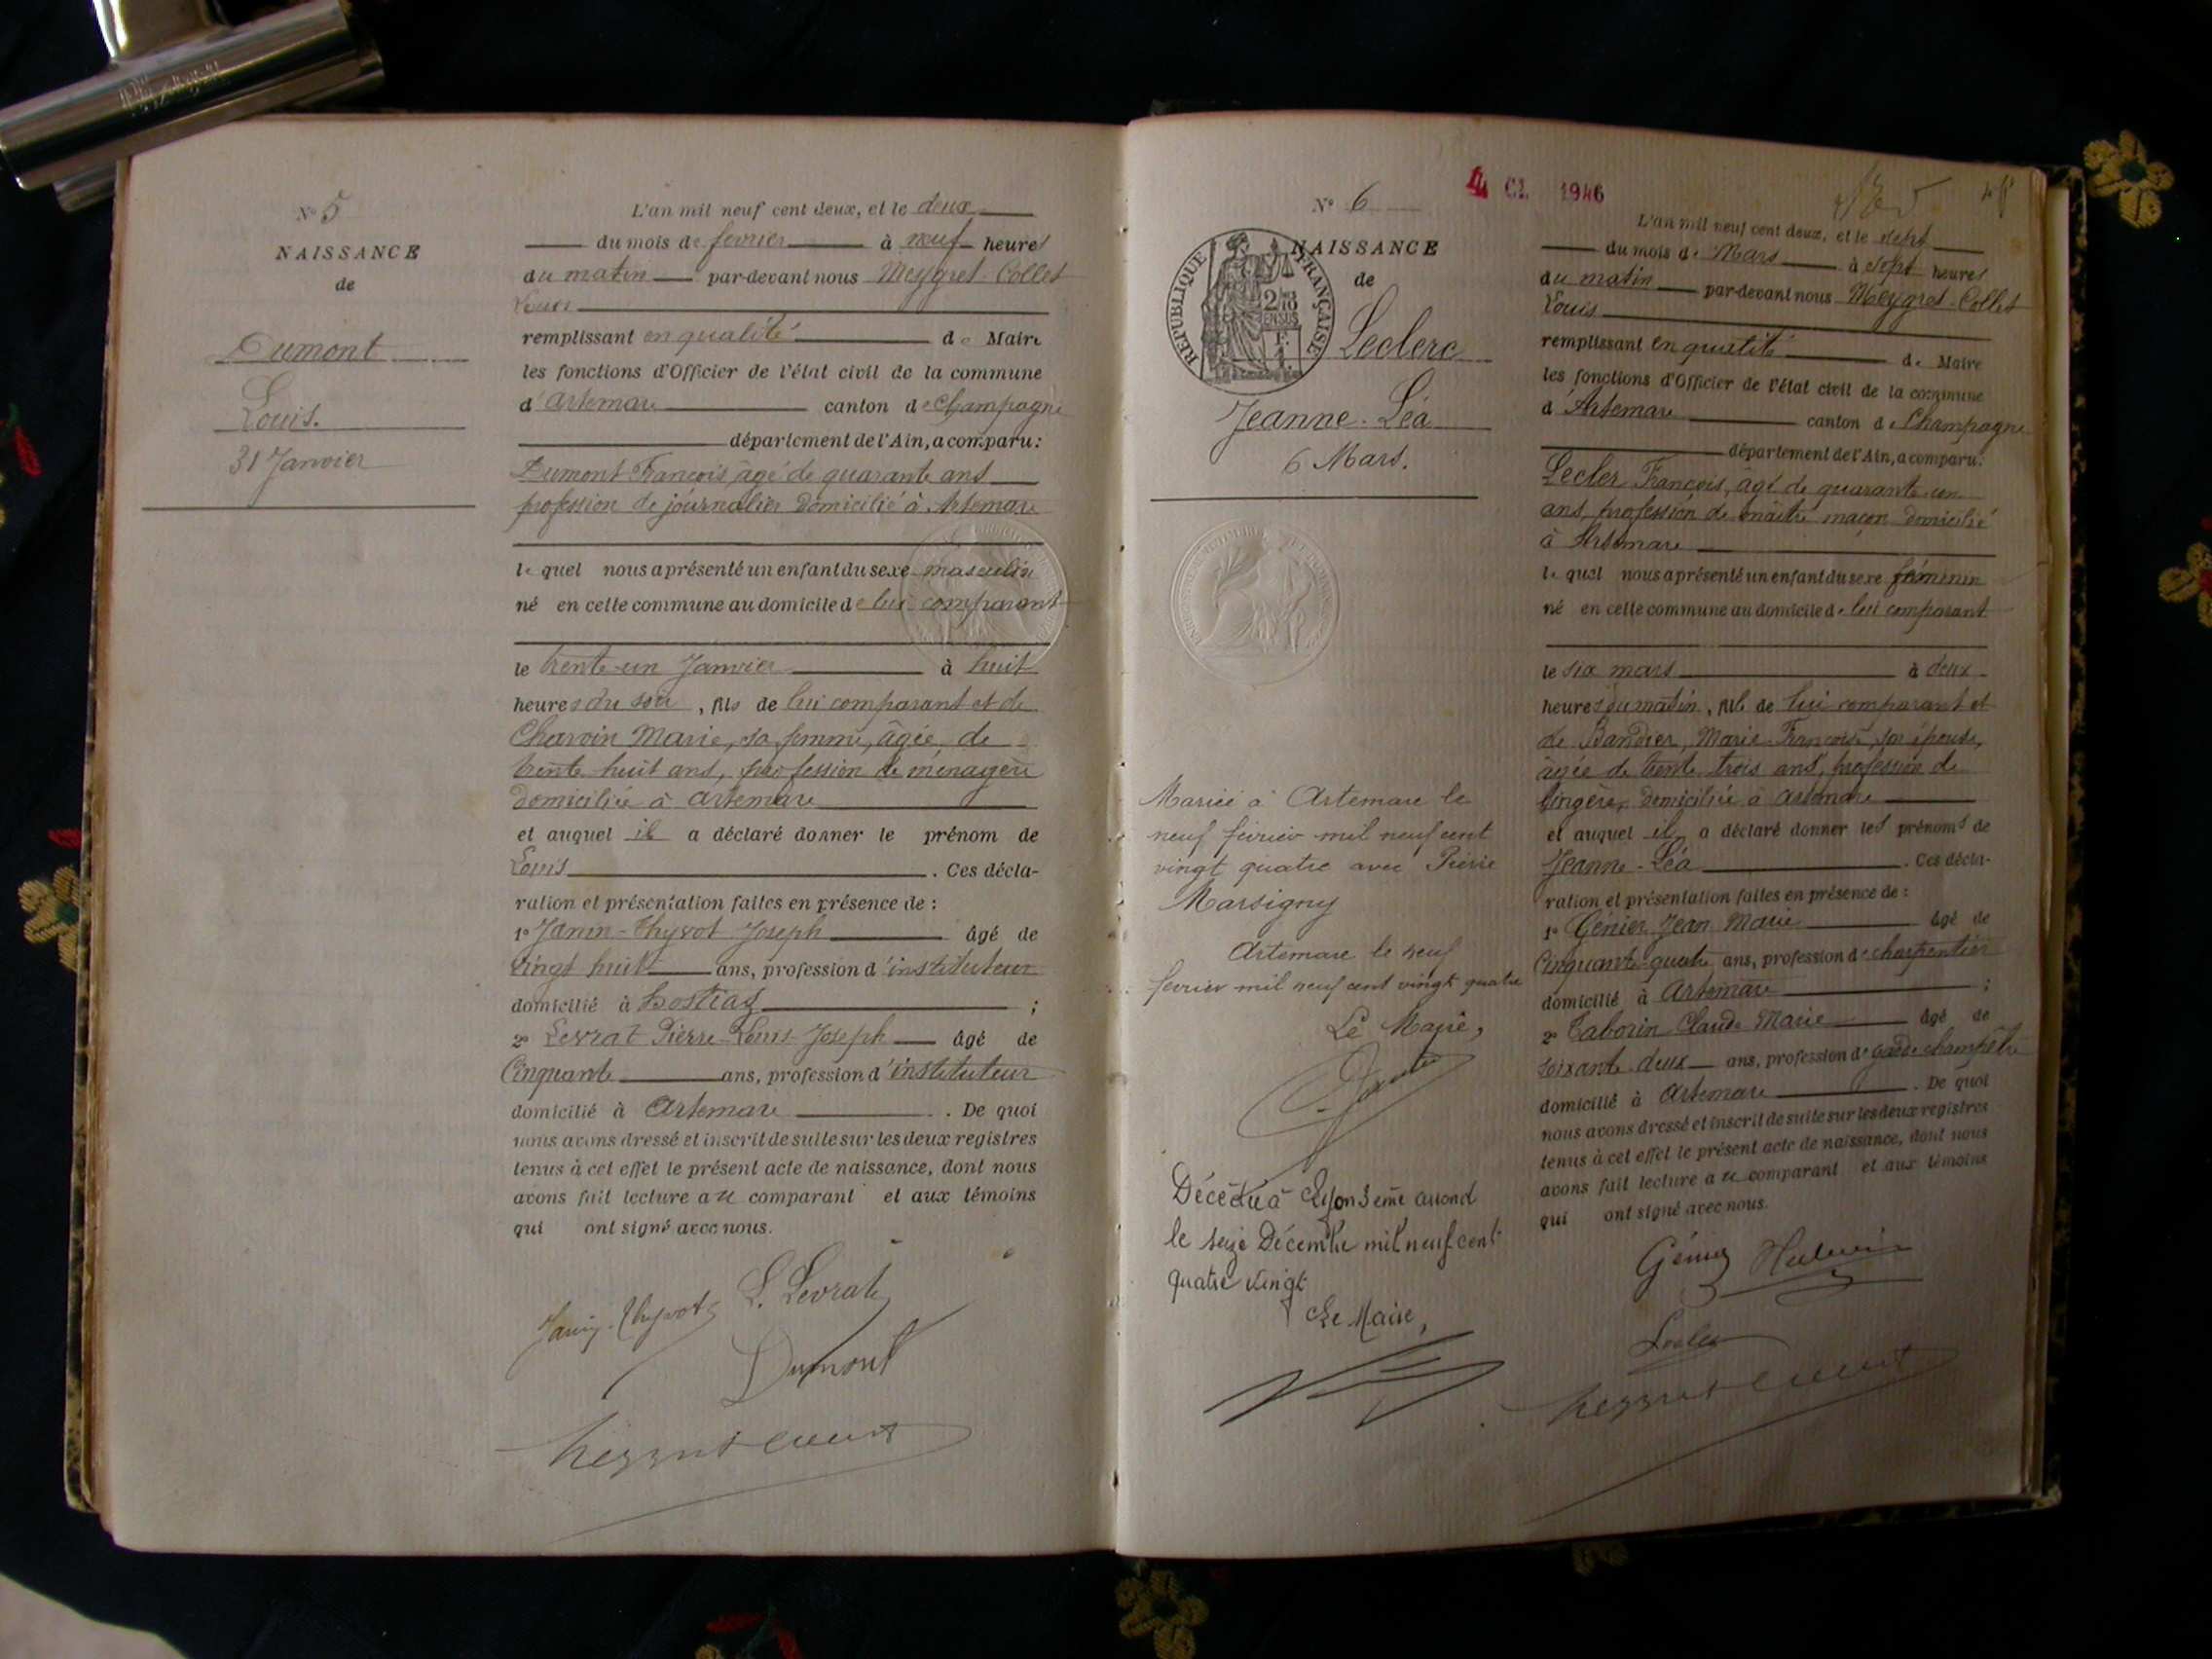 N° 5
NAISSANCE
de
Dumont
Louis.
31 Janvier
L'an mil neuf cent deux, et le deux
du mois de fevrier à neuf heures
du matin par-devant nous Meygret-Collet
Louis
remplissant en qualité de Maire
les fonctions d'Officier de l'état civil de la commune
d'Artemare canton de Champagne
département de l'Ain, a comparu:
Dumont François, âgé de quarante ans
profession de journalier domicilié à Artemare
lequel nous a présenté un enfant du sexe masculin
né en cette commune au domicile de lui comparant
le trente-un Janvier à huit
heures du soir, fils de lui comparant et de
Charvin Marie, sa femme, âgée de
trente huit ans, profession de ménagère
domiciliée à Artemare
et auquel il a déclaré donner le prénom de
Louis. Ces décla-
ration et présentation faites en présence de :
1° Janin-Thyvot Joseph âgé de
vingt huit ans, profession d'instituteur
domicilié à Hostiaz ;
2° Levrat Pierre-Louis-Joseph âgé de
Cinquante ans, profession d'instituteur
domicilié à Artemare. De quoi
nous avons dressé et inscrit de suite sur les deux registres
tenus à cet effet le présent acte de naissance, dont nous
avons fait lecture au comparant et aux témoins
qui ont signé avec nous.
L. Levrat
Janin-Thyvot
Dumont
4 1946
N° 6
NAISSANCE
de
RÉPUBLIQUE FRANÇAISE
Leclerc
Jeanne-Léa
6 Mars.
Mariée à Artemare le
neuf février mil neuf cent
vingt quatre avec Pierre
Marsigny
Artemare le neuf
février mil neuf cent vingt quatre
Le Maire,
Décédée à Lyon 3eme arrond
le seize Décembre mil neuf cent
quatre vingt
Le Maire,
L'an mil neuf cent deux, et le sept
du mois de Mars à sept heures
du matin par-devant nous Meygret-Collet
Louis
remplissant en qualité de Maire
les fonctions d'Officier de l'état civil de la commune
d'Artemare canton de Champagne
département de l'Ain, a comparu:
Lecler François, âgé de quarante-un
ans, profession de maître maçon domicilié
à Artemare
lequel nous a présenté un enfant du sexe féminin
né en cette commune au domicile de lui comparant
le six mars à deux
heures du matin, fille de lui comparant et
de Bandier, Marie-Françoise, son épouse,
âgée de trente trois ans, profession de
lingère, domiciliée à Artemare
et auquel il a déclaré donner les prénoms de
Jeanne-Léa. Ces décla-
ration et présentation faites en présence de :
1° Génier Jean Marie âgé de
Cinquante-quatre ans, profession de charpentier
domicilié à Artemare ;
2° Taborin Claude Marie âgé de
soixante deux ans, profession de garde champêtre
domicilié à Artemare. De quoi
nous avons dressé et inscrit de suite sur les deux registres
tenus à cet effet le présent acte de naissance, dont nous
avons fait lecture au comparant et aux témoins
qui ont signé avec nous.
Génier
Lecler